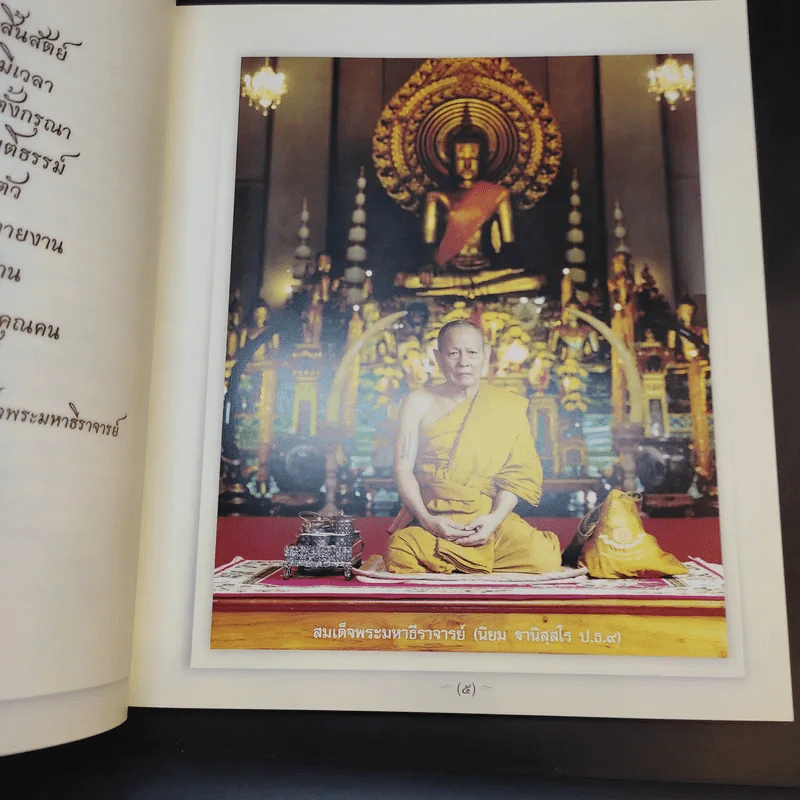 สิ้นสัตย์
มีเวลา
ตั้งกรุณา
ติธรรม์
ตัว
ายงาน
าน
คุณคน
จพระมหาธีราจารย์
สมเด็จพระมหาธีราจารย์ (นิยม ฐานิสฺสโร ป.ธ.๙)
(๕)